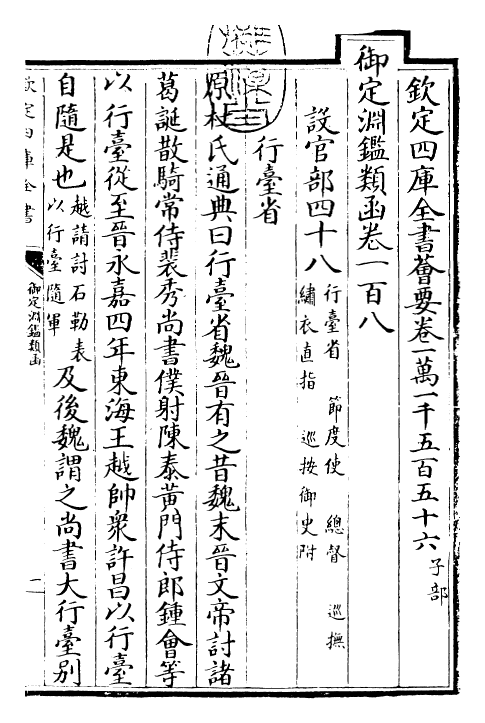 欽定四庫全書薈要卷一萬一千五百五十六 子部
御定淵鑑類函卷一百八
設官部四十八 行臺省 節度使 總督 巡撫
繡衣直指 巡按御史附
行臺省
原杜氏通典曰行臺省魏晉有之昔魏末晉文帝討諸
葛誕散騎常侍裴秀尚書僕射陳泰黃門侍郎鍾會等
以行臺從至晉永嘉四年東海王越帥衆許昌以行臺
自隨是也 越請討石勒表
以行臺隨軍 及後魏謂之尚書大行臺別
欽定四庫全書
御定淵鑑類函